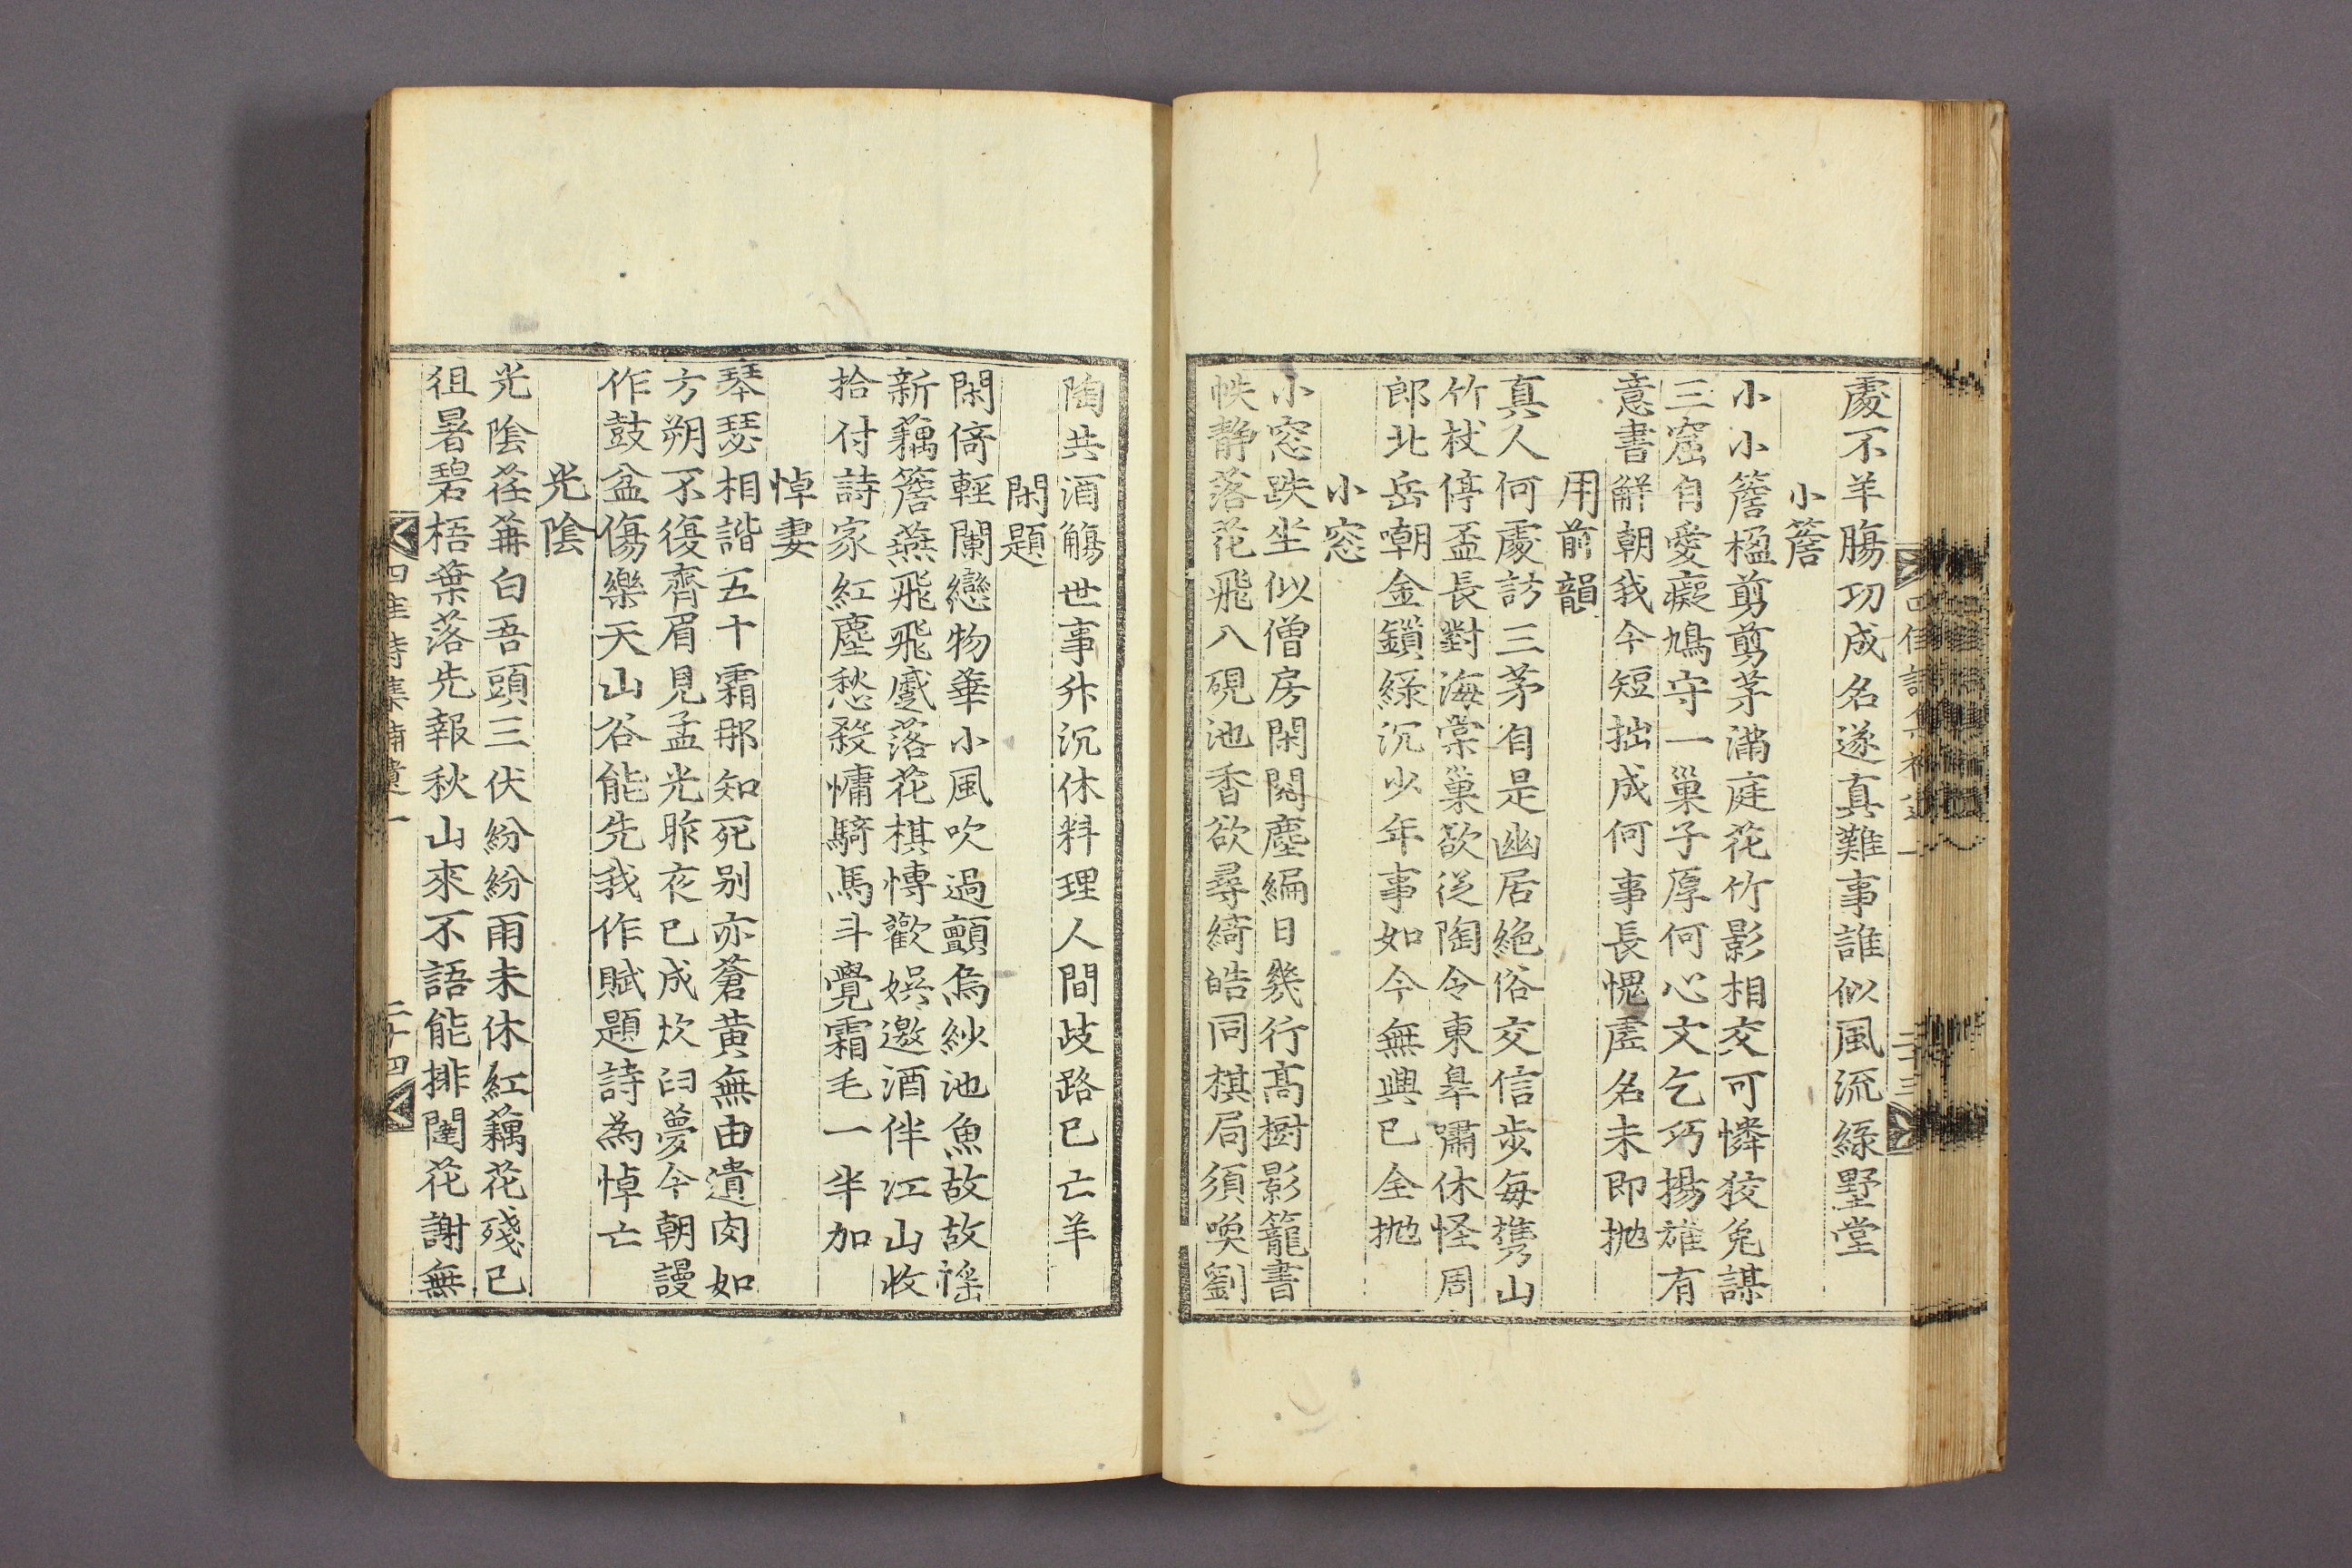 處不羊腸功成名遂真難事誰似風流綠墅堂
小簷
小小簷楹剪剪茅滿庭花竹影相交可憐狡兔謀
三窟自愛癡鳩守一巢子厚何心文乞巧揚雄有
意書解朝我今短拙成何事長愧虛名未即抛
用前韻
真人何處訪三茅自是幽居絶俗交信步每携山
竹杖停盃長對海棠巢欲從陶令東皐嘯休怪周
郎北岳嘲金鎖綠沉少年事如今無興已全抛
小窓
小窓趺坐似僧房閑閱塵編日幾行高樹影籠書
帙靜落花飛入硯池香欲尋綺皓同棋局須喚劉
四佳詩集補遺一
二十三
陶共酒觴世事升沉休料理人間歧路已亡羊
閑題
閑倚輕闌戀物華小風吹過顫烏紗池魚故故徭
新藕簷燕飛飛蹙落花棋慱歡娛邀酒伴江山收
拾付詩家紅塵愁殺慵騎馬斗覺霜毛一半加
悼妻
琴瑟相諧五十霜那知死别亦蒼黄無由遺肉如
方朔不復齊眉見孟光昨夜已成炊臼夢今朝謾
作鼓盆傷樂天山谷能先我作賦題詩為悼亡
光陰
光陰荏苒白吾頭三伏紛紛雨未休紅藕花殘已
徂暑碧梧葉落先報秋山來不語能排闥花謝無
四佳詩集補遺一
二十四